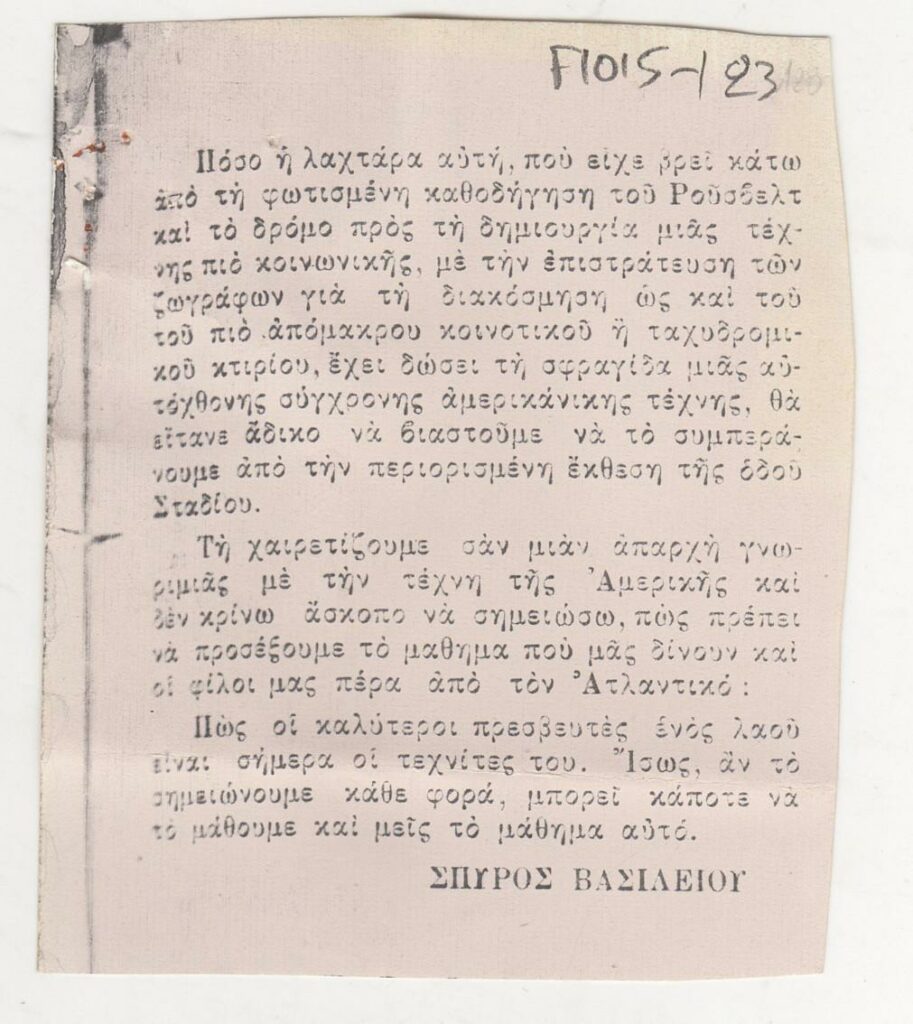 F1015-123
Πόσο ἡ λαχτάρα αὐτή, ποὺ εἶχε βρεῖ κάτω
ἀπὸ τὴ φωτισμένη καθοδήγηση τοῦ Ροῦσβελτ
καὶ τὸ δρόμο πρὸς τὴ δημιουργία μιᾶς τέχ-
νης πιὸ κοινωνικῆς, μὲ τὴν ἐπιστράτευση τῶν
ζωγράφων γιὰ τὴ διακόσμηση ὡς καὶ τοῦ
τοῦ πιὸ ἀπόμακρου κοινοτικοῦ ἢ ταχυδρομι-
κοῦ κτιρίου, ἔχει δώσει τὴ σφραγίδα μιᾶς αὐ-
τόχθονης σύγχρονης ἀμερικάνικης τέχνης, θὰ
εἴτανε ἄδικο νὰ βιαστοῦμε νὰ τὸ συμπερά-
νουμε ἀπὸ τὴν περιορισμένη ἔκθεση τῆς ὁδοῦ
Σταδίου.
Τὴ χαιρετίζουμε σὰν μιὰν ἀπαρχὴ γνω-
ριμιᾶς μὲ τὴν τέχνη τῆς Ἀμερικῆς καὶ
δὲν κρίνω ἄσκοπο νὰ σημειώσω, πὼς πρέπει
νὰ προσέξουμε τὸ μαθημα ποὺ μᾶς δίνουν καὶ
οἱ φίλοι μας πέρα ἀπὸ τὸν Ἀτλαντικό:
Πὼς οἱ καλύτεροι πρεσβευτὲς ἑνὸς λαοῦ
εἶναι σήμερα οἱ τεχνίτες του. Ἴσως, ἂν τὸ
σημειώνουμε κάθε φορά, μπορεῖ κάποτε νὰ
τὸ μάθουμε καὶ μεῖς τὸ μάθημα αὐτό.
ΣΠΥΡΟΣ ΒΑΣΙΛΕΙΟΥ